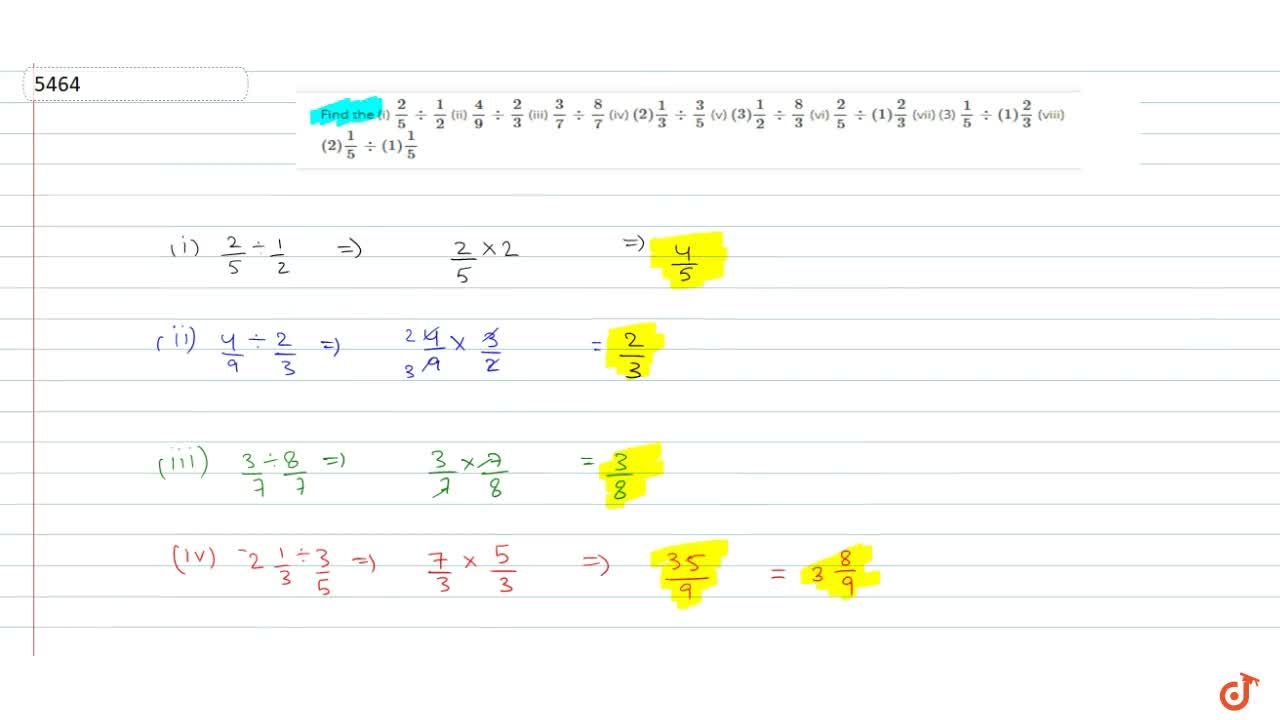 5464
Find the (i) 2/5 ÷ 1/2 (ii) 4/9 ÷ 2/3 (iii) 3/7 ÷ 8/7 (iv) (2)1/3 ÷ 3/5 (v) (3)1/2 ÷ 8/3 (vi) 2/5 ÷ (1)2/3 (vii) (3) 1/5 ÷ (1)2/3 (viii)
(2)1/5 ÷ (1)1/5
(i) 2/5 ÷ 1/2 => 2/5 × 2 => 4/5
(ii) 4/9 ÷ 2/3 => 2 4/9 3 × 3/2 = 2/3
(iii) 3/7 ÷ 8/7 => 3/7 × 7/8 = 3/8
(iv) 2 1/3 ÷ 3/5 => 7/3 × 5/3 => 35/9 = 3 8/9